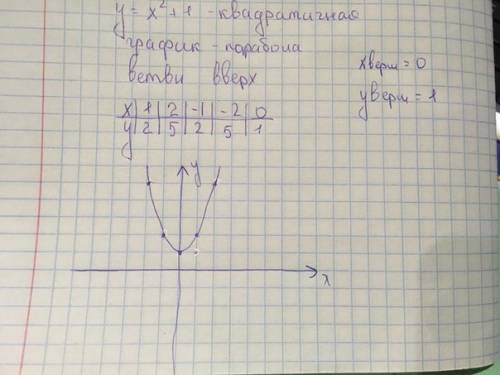 y = x² + 1 - квадратичная
график - парабола
ветви вверх
x верш = 0
y верш = 1
x 1 2 -1 -2 0
y 2 5 2 5 1
y
x